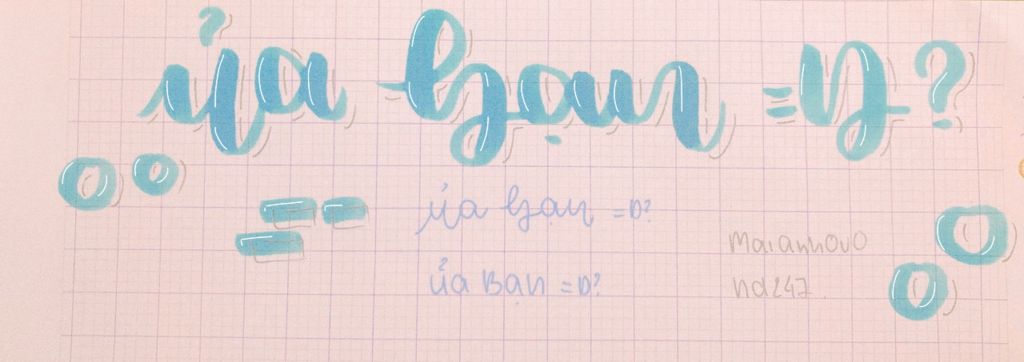 ủa bạn =D?
ủa bạn =D?
ủa bạn =D?
maianhovo
nd247.